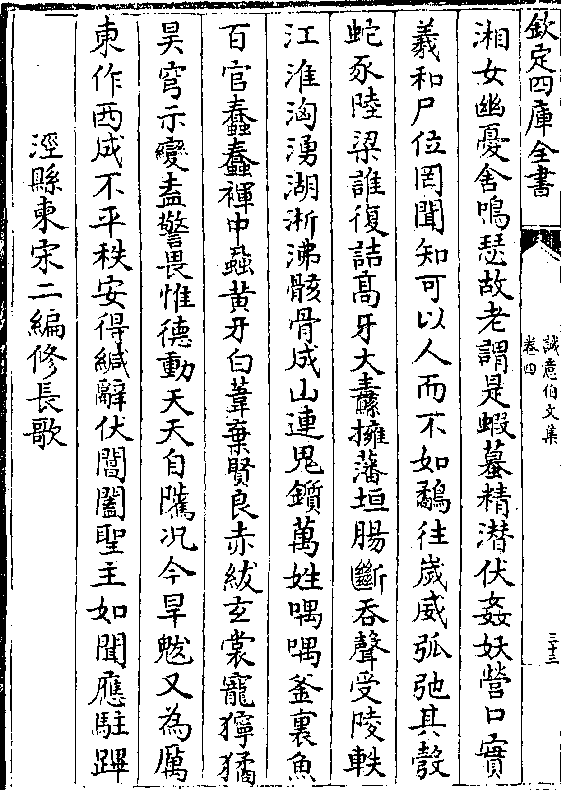 欽定四庫全書
誠意伯文集
卷四
三十三
湘女幽憂舍鳴瑟故老謂是蝦蟇精潛伏姦妖營口實
羲和尸位罔聞知可以人而不如鷸往嵗威弧弛其彀
蛇豕陸梁誰復詰髙牙大纛擁藩垣腸斷吞聲受陵軼
江淮洶湧湖浙沸骸骨成山連鬼鑕萬姓喁喁釜裏魚
百官蠢蠢褌中蝨黄牙白葦棄賢良赤紱玄裳寵獰獝
昊穹示變盍警畏惟徳動天天自隲况今旱魃又為厲
東作西成不平秩安得緘辭伏閶闔聖主如聞應駐蹕
涇縣東宋二編修長歌